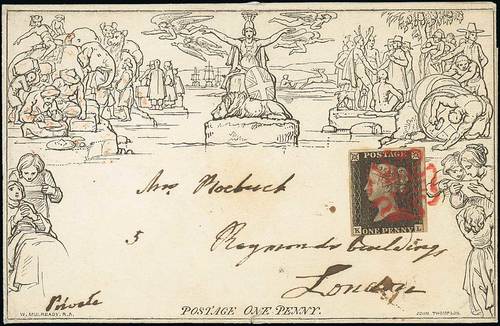 POSTAGE
ONE PENNY
K L
Mrs Roebuck
5 Raymonds buildings
London
Private
W. MULREADY. R.A.
POSTAGE ONE PENNY.
JOHN THOMPSON